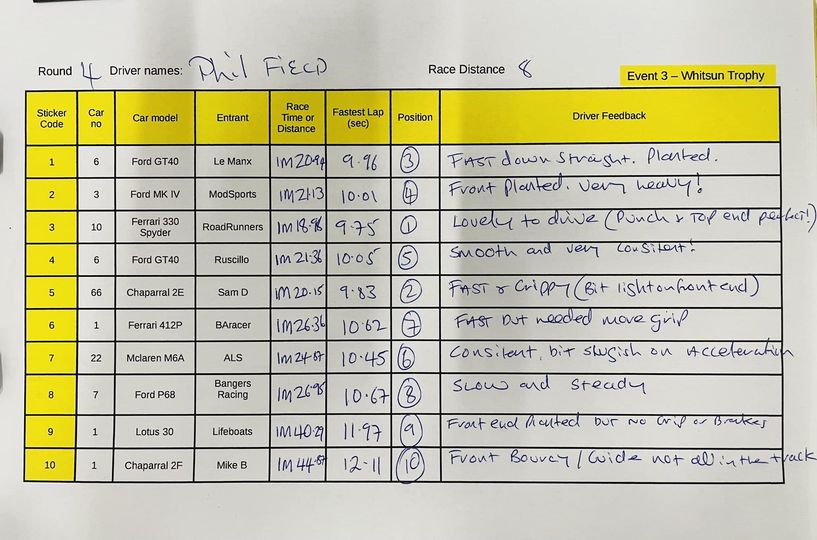 Round 4 Driver names: Phil FIELD Race Distance 8
Event 3 – Whitsun Trophy
Sticker Code Car no Car model Entrant Race Time or Distance Fastest Lap (sec) Position Driver Feedback
1 6 Ford GT40 Le Manx 1M20.94 9.96 3 FAST down straight. Planted.
2 3 Ford MK IV ModSports 1M21.13 10.01 4 Front Planted. Very heavy!
3 10 Ferrari 330 Spyder RoadRunners 1M18.96 9.75 1 Lovely to drive (Punch & Top end perfect!)
4 6 Ford GT40 Ruscillo 1M21.36 10.05 5 Smooth and very consitent!
5 66 Chaparral 2E Sam D 1M20.15 9.83 2 FAST & Grippy (Bit light on front end)
6 1 Ferrari 412P BAracer 1M26.36 10.62 7 FAST but needed more grip
7 22 Mclaren M6A ALS 10.45 6 Consitent, bit slugish on Acceleration
8 7 Ford P68 Bangers Racing 1M26.95 10.67 8 Slow and Steady
9 1 Lotus 30 Lifeboats 1M40.29 11.97 9 Front end Planted but no Grip or Brakes
10 1 Chaparral 2F Mike B 12.11 10 Front Bouncy / Guide not all in the track